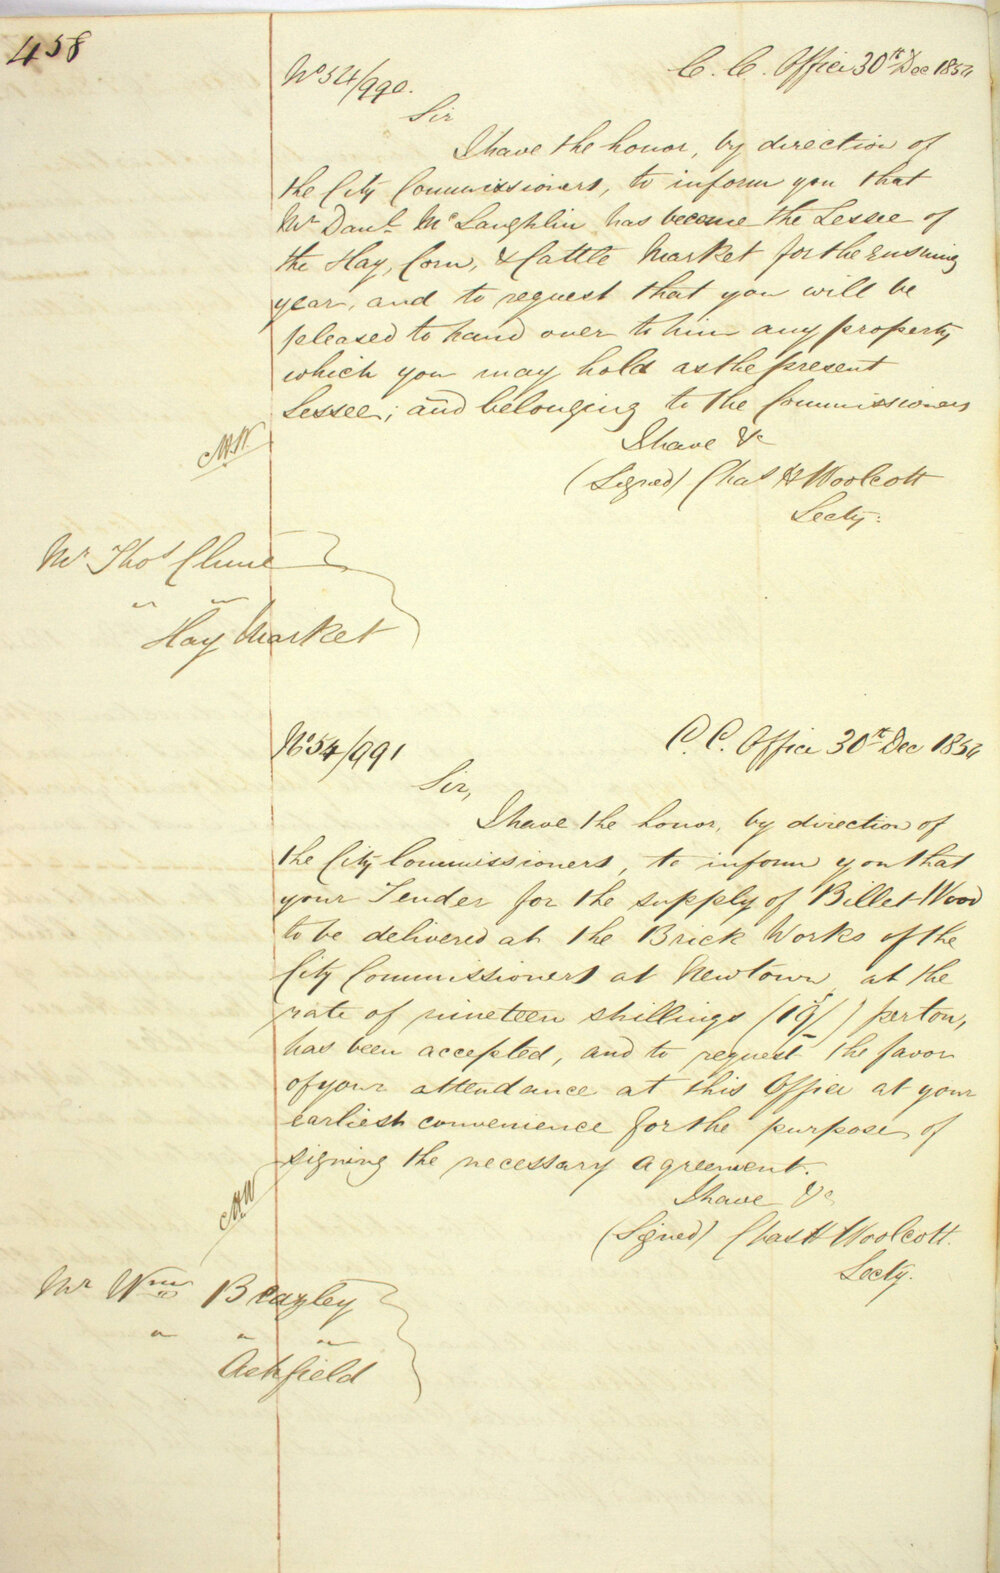 458
No 54/990.
C. C. Office 30th Dec 1854
Sir
I have the honor, by direction of
the City Commissioners, to inform you that
Mr Danl. McLaughlin has become the Lessee of
the Hay, Corn, & Cattle Market for the ensuing
year, and to request that you will be
pleased to hand over to him any property
which you may hold as the present
Lessee; and belonging to the Commissioners
I have &c
(Signed) Chas H Woolcott
Secty:
Mr Thos Clune
" "
Hay Market
No 54/991
C. C. Office 30th Dec 1854
Sir,
I have the honor, by direction of
the City Commissioners, to inform you that
your Tender for the supply of Billet Wood
to be delivered at the Brick Works of the
City Commissioners at Newtown, at the
rate of nineteen shillings (19s/) per ton,
has been accepted, and to request the favor
of your attendance at this Office at your
earliest convenience for the purpose of
signing the necessary agreement.
I have &c
(Signed) Chas H Woolcott.
Secty.
Mr Wm Beazley
" " "
Ashfield